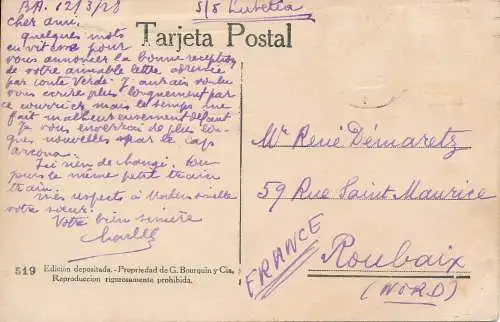 BA. 12/3/28
S/S Lutetia
Tarjeta Postal
Cher ami.
quelques mots
en vitesse pour
vous annoncer la bonne reception
de votre aimable lettre adressée
par Conte Verde. J'aurais voulu
vous ecrire plus longuement par
ce courrier, mais le temps me
fait malheureusement defaut
Je vous enverrai de plus lon-
gues nouvelles par le Cap
Arcona.
Ici rien de changé. Tou
jours le même petit train
train.
Mes respects à Mademoiselle
votre soeur.
Votre bien sincère
Mr René Démaretz
59 Rue Saint-Maurice
Roubaix
(NORD)
FRANCE
519 Edición depositada.-Propriedad de G. Bourquin y Cia.
Reproduccion rigurosamente prohibida.